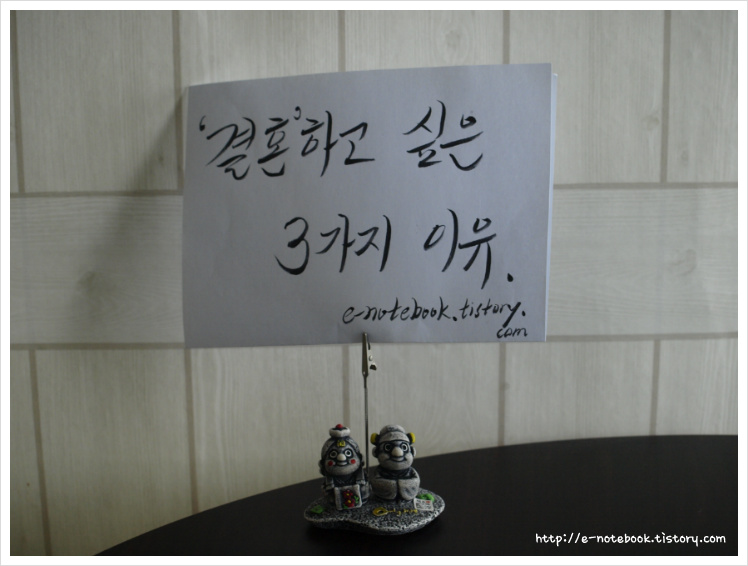 '결혼'하고 싶은
3가지 이유.
e-notebook.tistory.
com
http://e-notebook.tistory.com